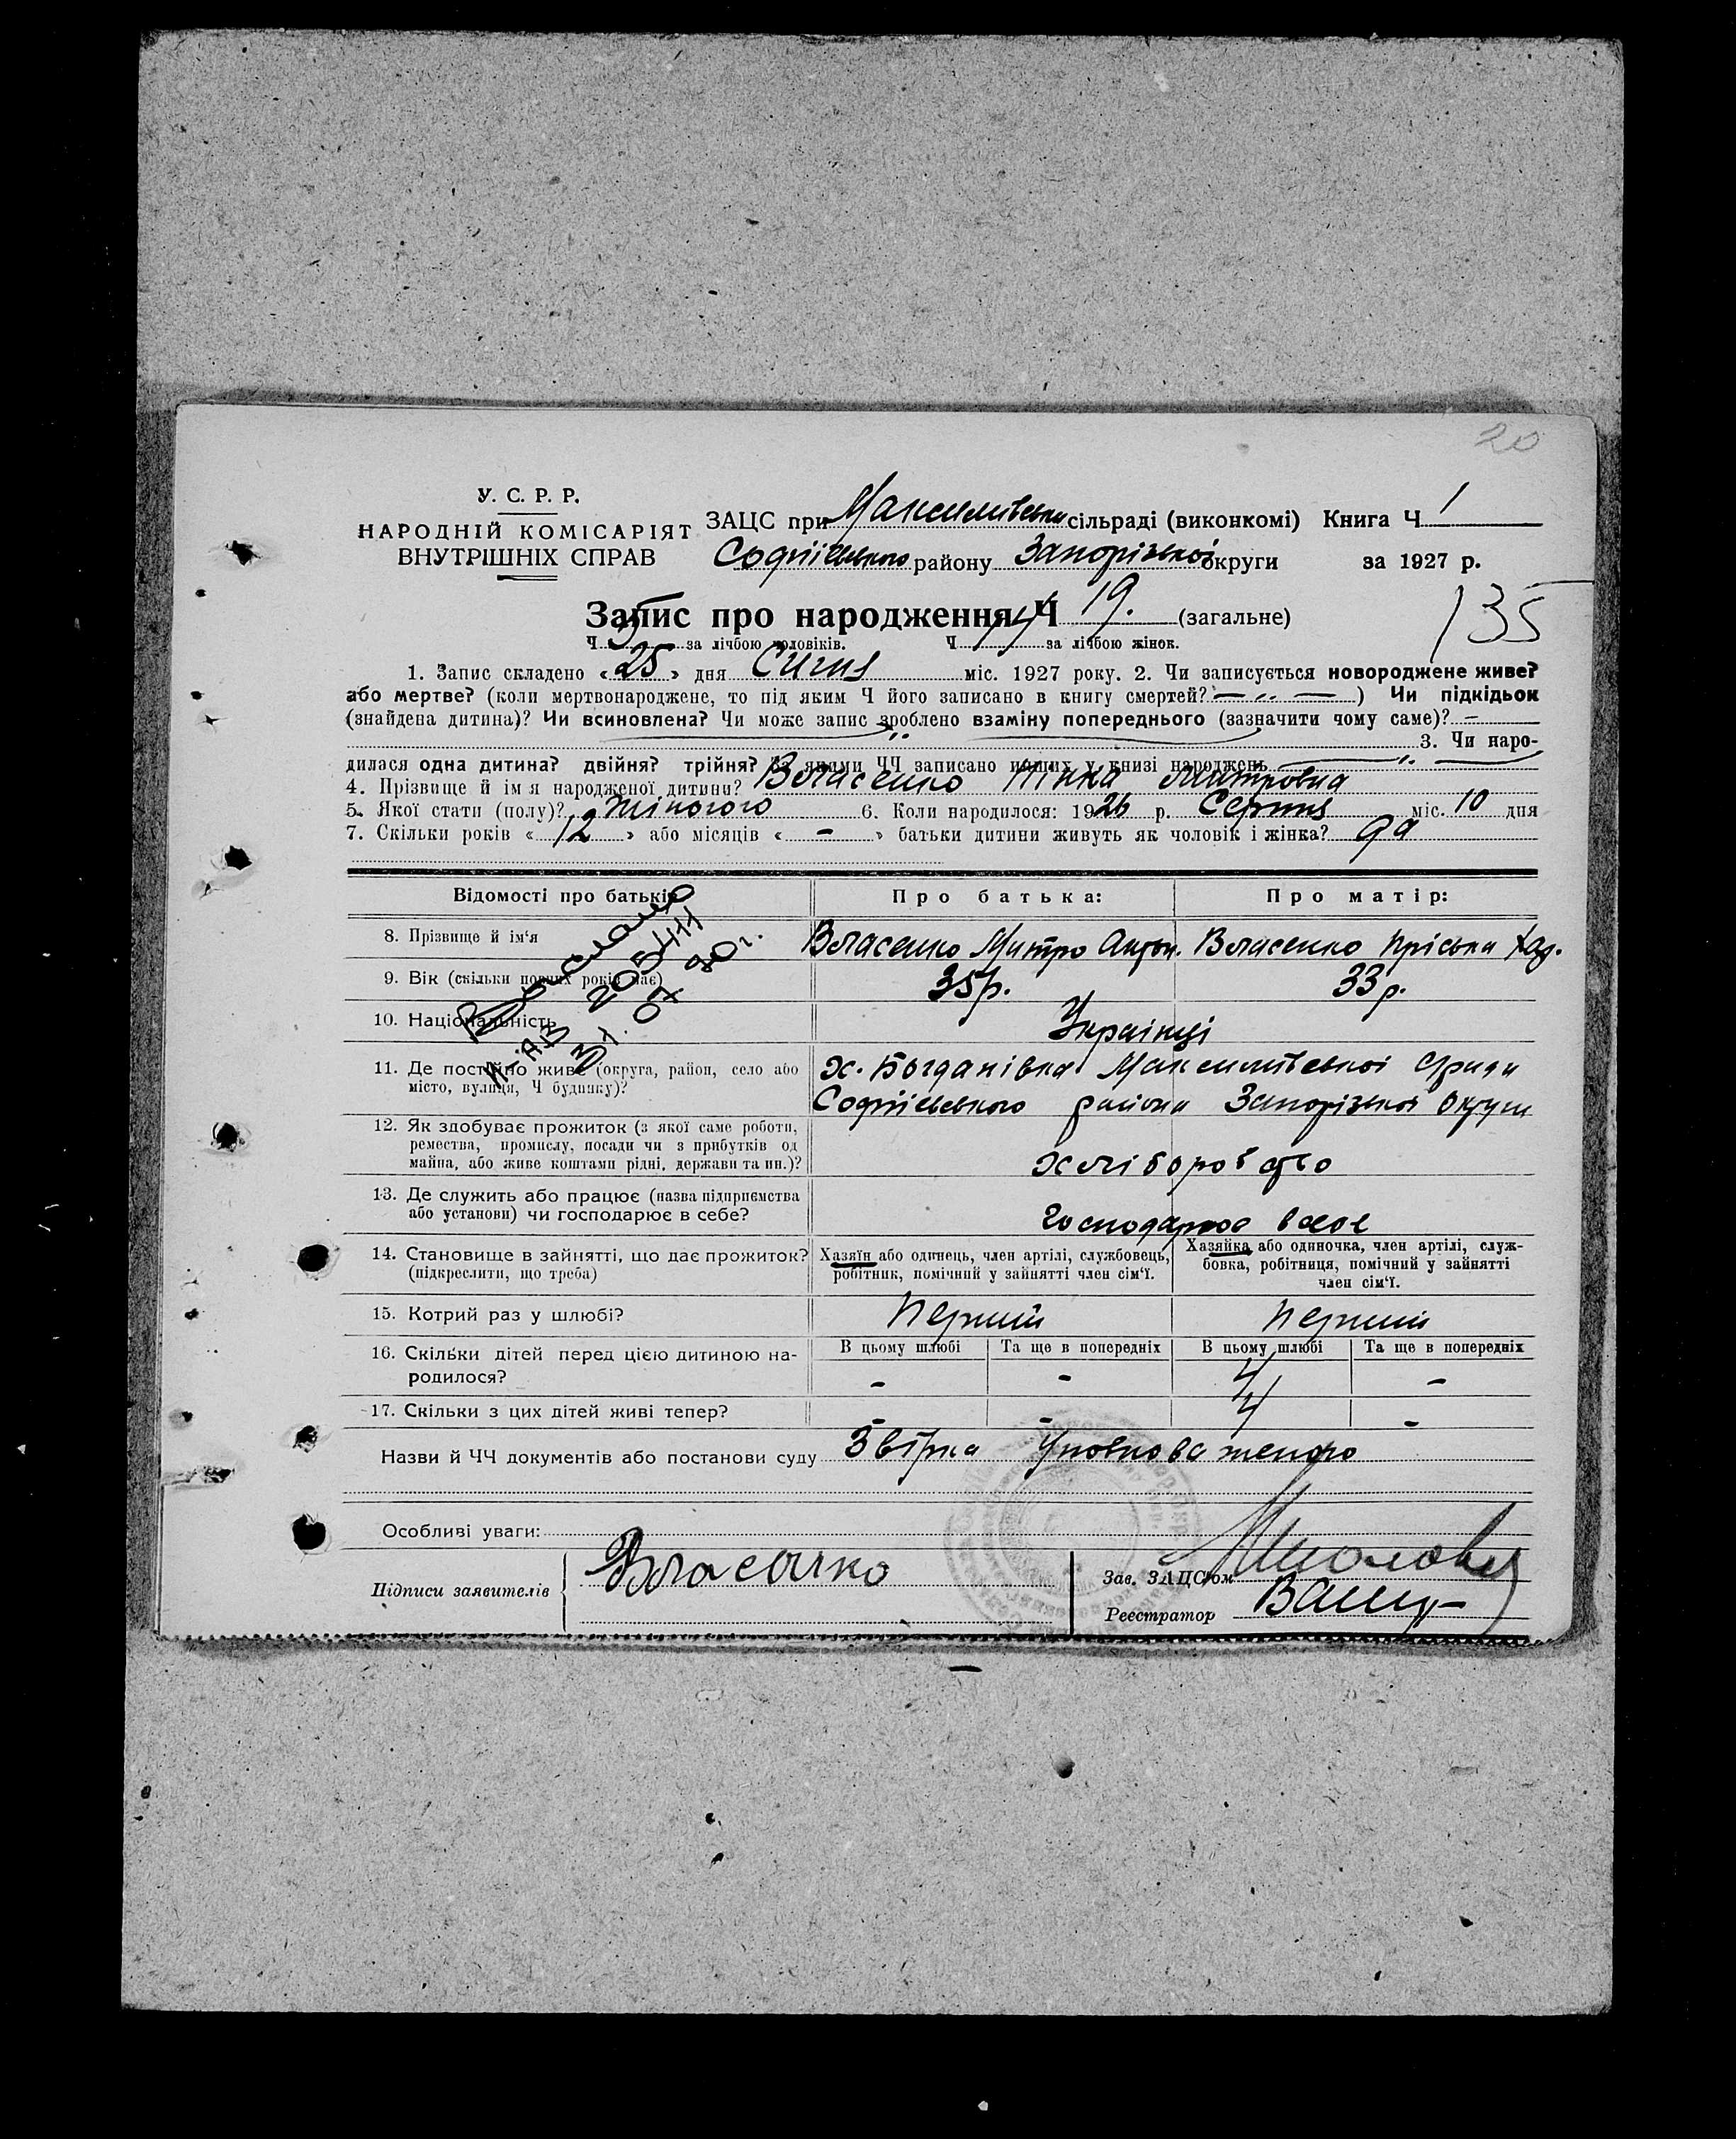 20
У. С. Р. Р.
НАРОДНІЙ КОМІСАРІЯТ
ВНУТРІШНІХ СПРАВ
ЗАЦС при сільраді (виконкомі) Книга Ч 1
Софіївського району Запорізької округи за 1927 р.
Запис про народження Ч 19. (загальне)
135
Ч 5 за лічбою чоловіків. Ч 14 за лічбою жінок.
1. Запис складено «25» дня Січня міс. 1927 року. 2. Чи записується новороджене живе?
або мертве? (коли мертвонароджене, то під яким Ч його записано в книгу смертей? — „ —) Чи підкідьок
(знайдена дитина)? Чи всиновлена? Чи може запис зроблено взаміну попереднього (зазначити чому саме)? —
3. Чи наро-
дилася одна дитина? двійня? трійня? За якими ЧЧ записано инших у книзі народжень — „ —
4. Прізвище й ім'я народженої дитини? Власенко Нінка Митровна
5. Якої стати (полу)? Жіночого 6. Коли народилося: 1926 р. Серпня міс. 10 дня
7. Скільки років «12» або місяців « - » батьки дитини живуть як чоловік і жінка?
Відомості про батьків Про батька: Про матір:
8. Прізвище й ім'я Власенко Митро Антон. Власенко Пріська
9. Вік (скільки повних років має) 35 р. 33 р.
10. Національність Українці
11. Де постійно живе (округа, район, село або
місто, вулиця, Ч будинку)?
х. Богданівка
Софіївського района Запорізької Округи
12. Як здобуває прожиток (з якої саме роботи,
ремества, промислу, посади чи з прибутків од
майна, або живе коштами рідні, держави та ин.)?
хліборобство
13. Де служить або працює (назва підприємства
або установи) чи господарює в себе?
Господарює в себе
14. Становище в зайнятті, що дає прожиток?
(підкреслити, що треба)
Хазяїн або одинець, член артілі, службовець,
робітник, помічний у зайнятті член сім'ї.
Хазяйка або одиночка, член артілі, служ-
бовка, робітниця, помічний у зайнятті
член сім'ї.
15. Котрий раз у шлюбі? Перший Перший
16. Скільки дітей перед цією дитиною на-
родилося?
В цьому шлюбі Та ще в попередніх В цьому шлюбі Та ще в попередніх
- - 4 -
17. Скільки з цих дітей живі тепер? - - 4 -
Назви й ЧЧ документів або постанови суду Звірка Уповноваженого
Особливі уваги:
Підписи заявителів Власенко
Зав. ЗАЦС'ом
Реєстратор